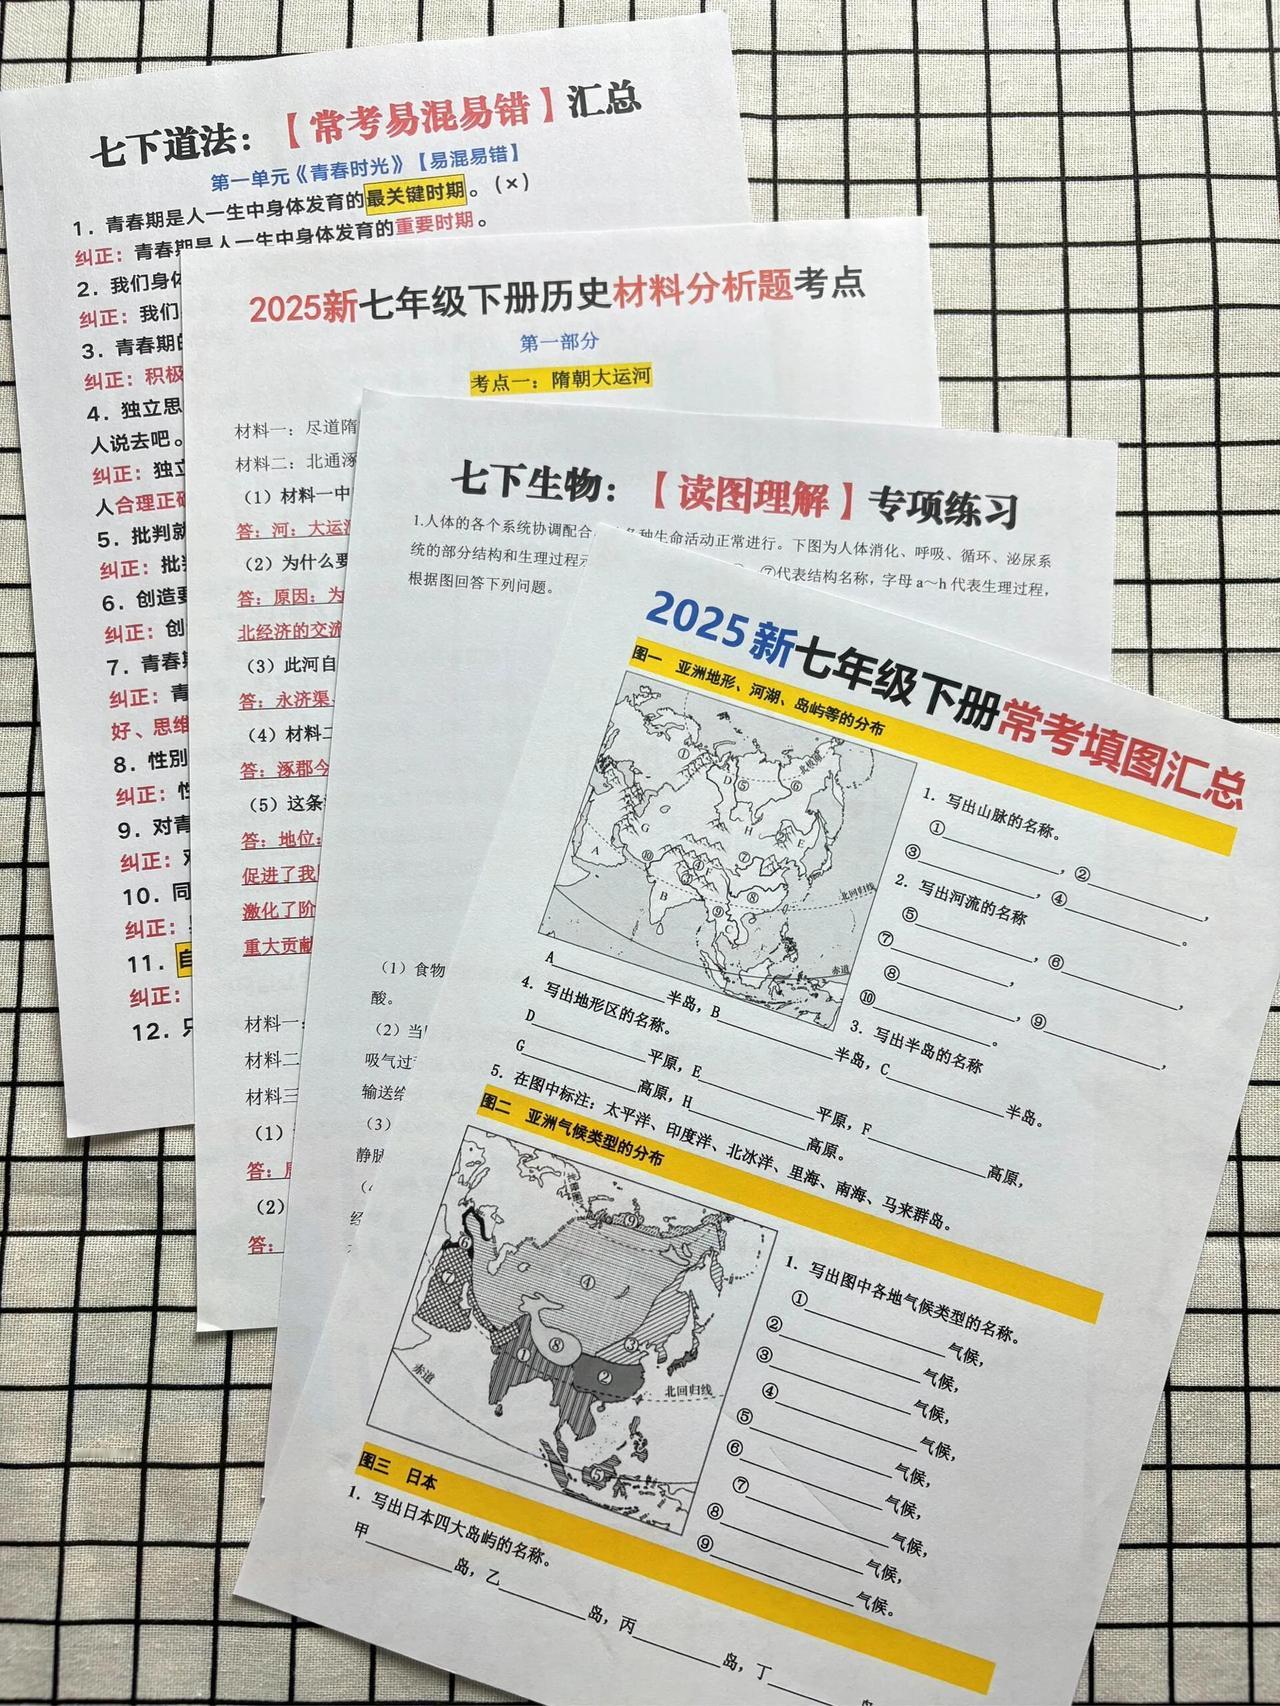 七下道法：【常考易混易错】汇总
第一单元《青春时光》【易混易错】
1. 青春期是人一生中身体发育的最关键时期。(×)
纠正：青春期是人一生中身体发育的重要时期。
2. 我们身体
纠正：我们
3. 青春期的
纠正：积极
4. 独立思
人说去吧。
纠正：独立
人合理正确
5. 批判就
纠正：批判
6. 创造要
纠正：创
7. 青春期
纠正：青
好、思维
8. 性别
纠正：性
9. 对青
纠正：对
10. 同
纠正：
11. 自
纠正：
12. 只
2025新七年级下册历史材料分析题考点
第一部分
考点一：隋朝大运河
材料一：尽道隋
材料二：北通涿
（1）材料一中
答：河：大运河
（2）为什么要
答：原因：为
北经济的交流
（3）此河自
答：永济渠、
（4）材料二
答：涿郡今
（5）这条
答：地位：
促进了我
激化了阶
重大贡献
材料一：
材料二
材料三
（1）
答：
（2）
答：
七下生物：【读图理解】专项练习
1.人体的各个系统协调配合，各种生命活动正常进行。下图为人体消化、呼吸、循环、泌尿系
统的部分结构和生理过程示 ⑦代表结构名称，字母 a～h 代表生理过程，
根据图回答下列问题。
（1）食物
酸。
（2）当
吸气过
输送给
（3）
静脉
经
2025新七年级下册常考填图汇总
图一 亚洲地形、河湖、岛屿等的分布
北极圈
北回归线
赤道
A B C D E G H
① ② ⑤ ⑥ ⑦ ⑧ ⑨ ⑩
1. 写出山脉的名称。
①，②，
③，④。
2. 写出河流的名称
⑤，⑥，
⑦，
⑧，⑨，
⑩。
3. 写出半岛的名称
A半岛，B半岛，C半岛。
4. 写出地形区的名称。
D平原，E平原，F高原，
G高原，H高原。
5. 在图中标注：太平洋、印度洋、北冰洋、里海、南海、马来群岛。
图二 亚洲气候类型的分布
北极圈
赤道
北回归线
① ② ③ ④ ⑤ ⑥ ⑦ ⑧ ⑨
1. 写出图中各地气候类型的名称。
①气候，
②气候，
③气候，
④气候，
⑤气候，
⑥气候，
⑦气候，
⑧气候，
⑨气候。
图三 日本
1. 写出日本四大岛屿的名称。
甲岛，乙岛，丙岛，丁岛